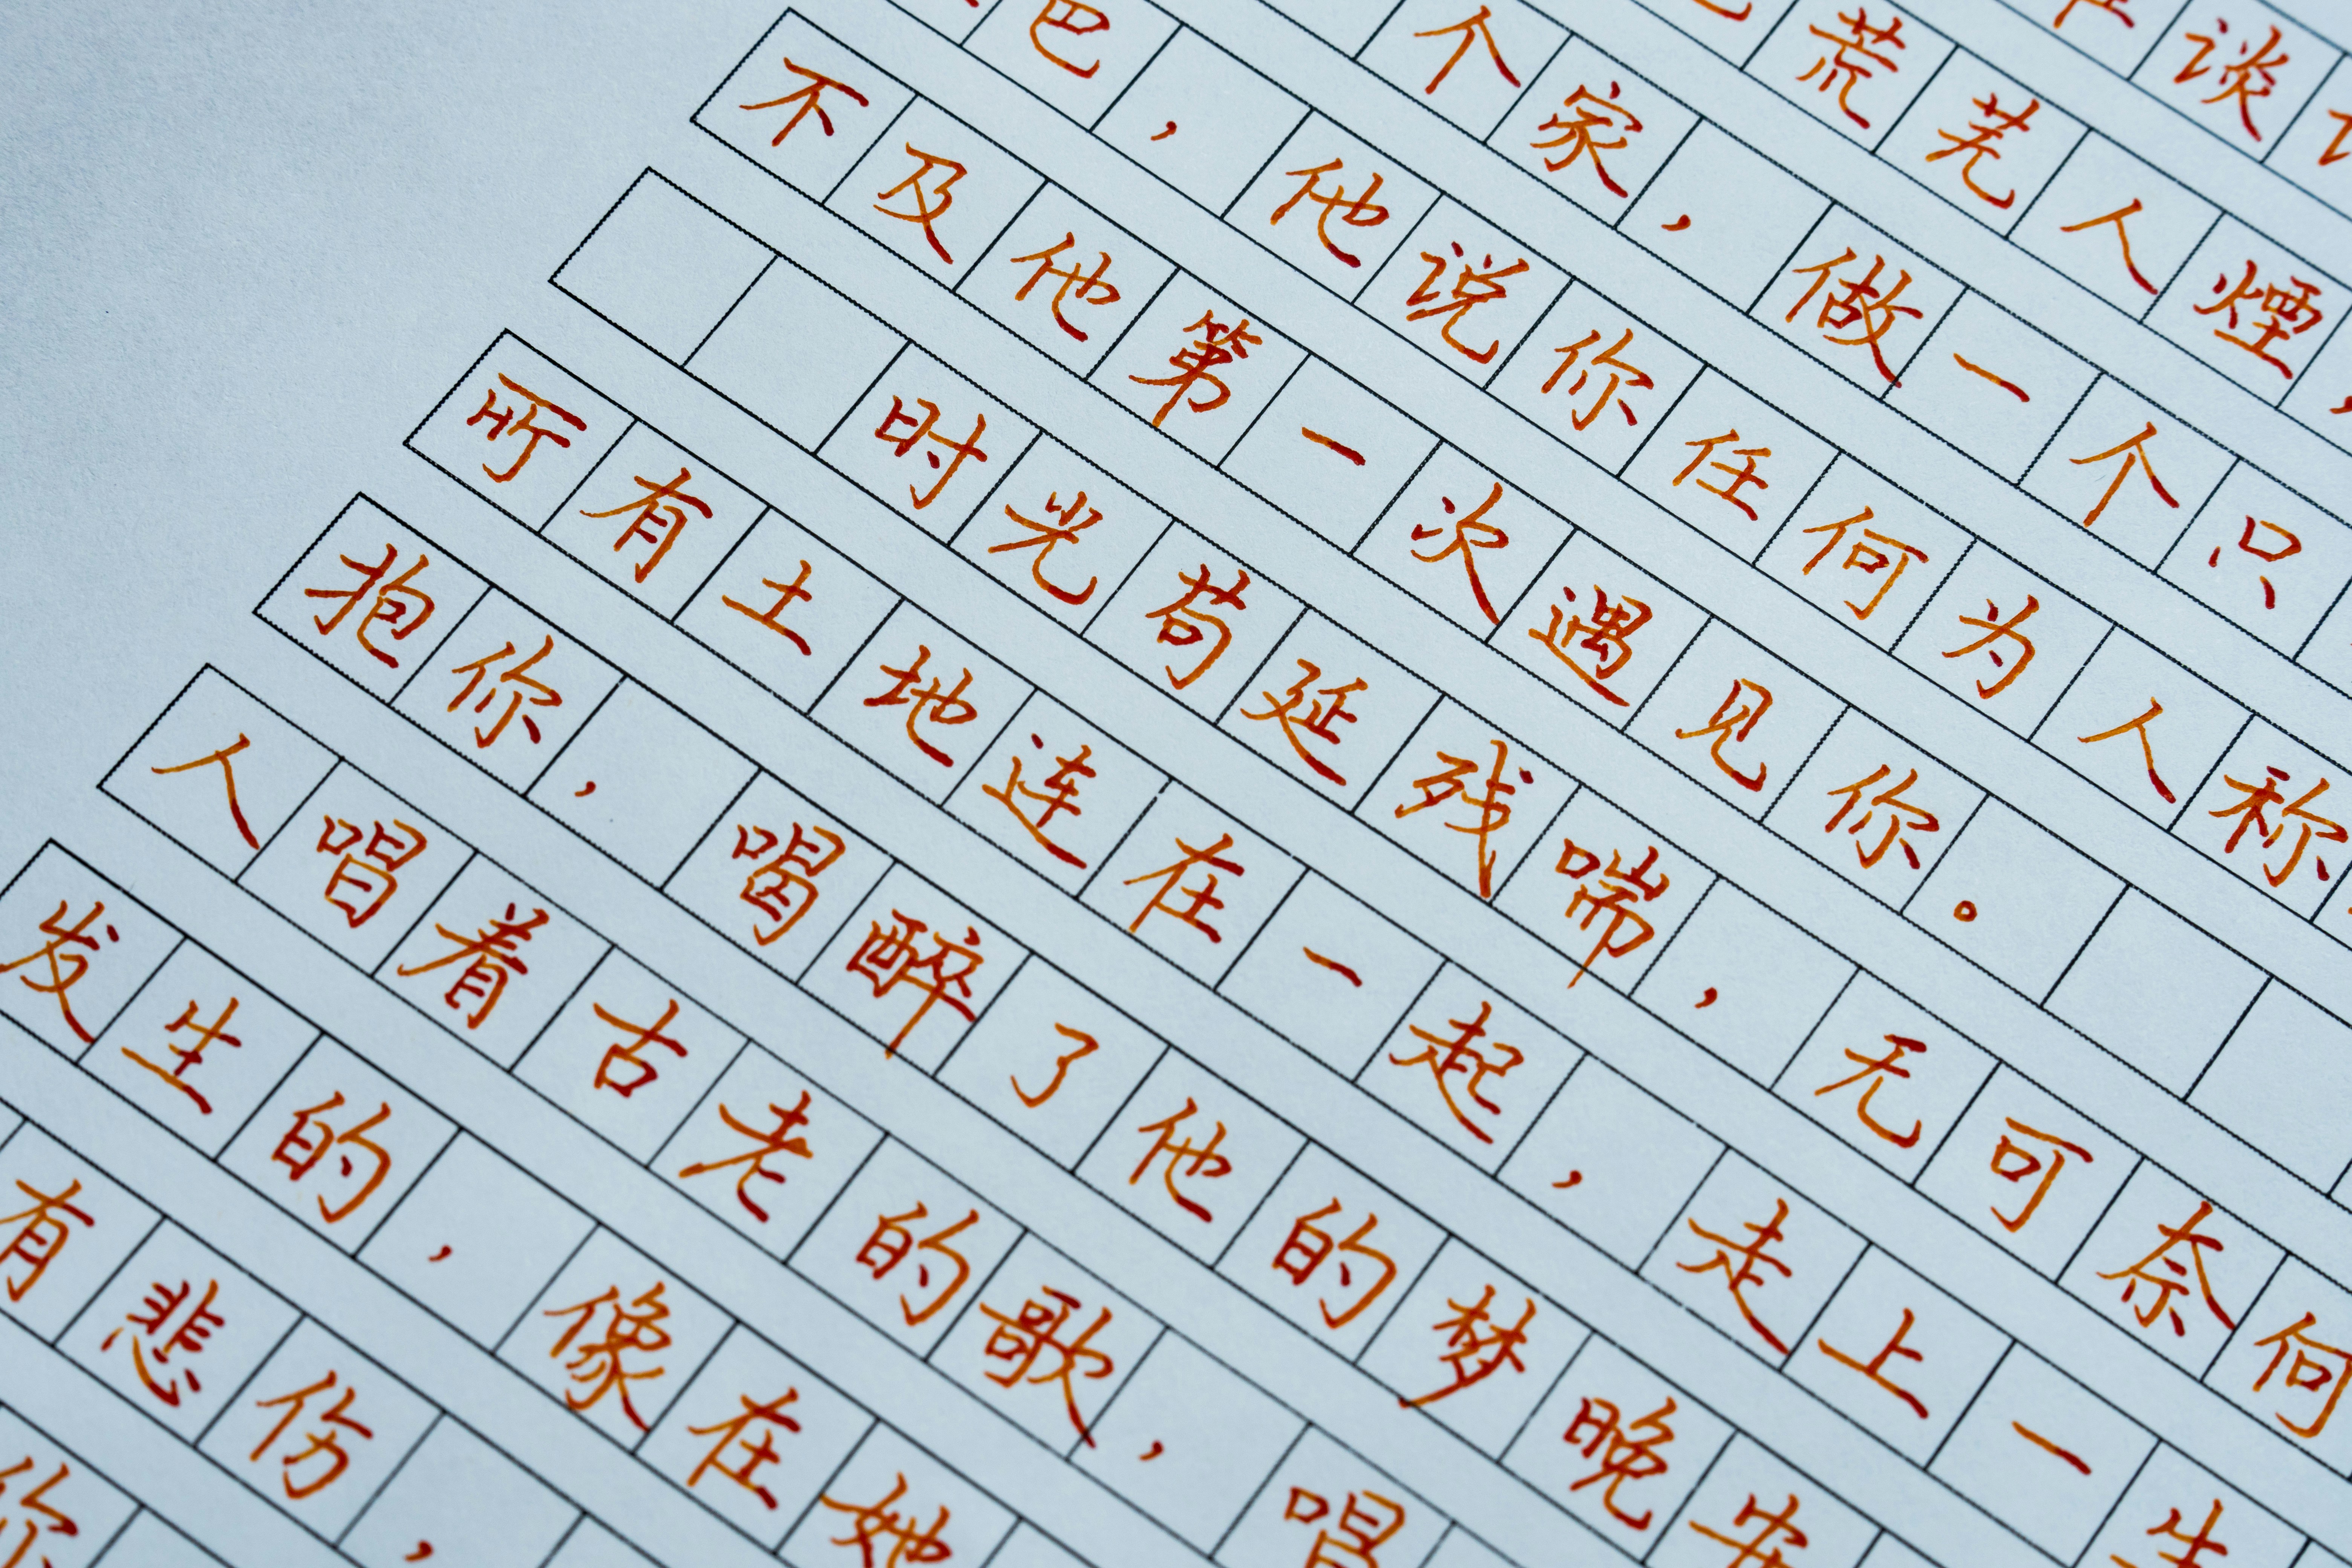 谈
荒芜人煙，
个家，做一个只
巴，他说你任何为人称
不及他第一次遇见你。
时光苟延残喘，无可奈何
所有土地连在一起，走上一生
抱你，喝醉了他的梦晚安
人唱着古老的歌，唱
发生的，像在她
有悲伤，
你